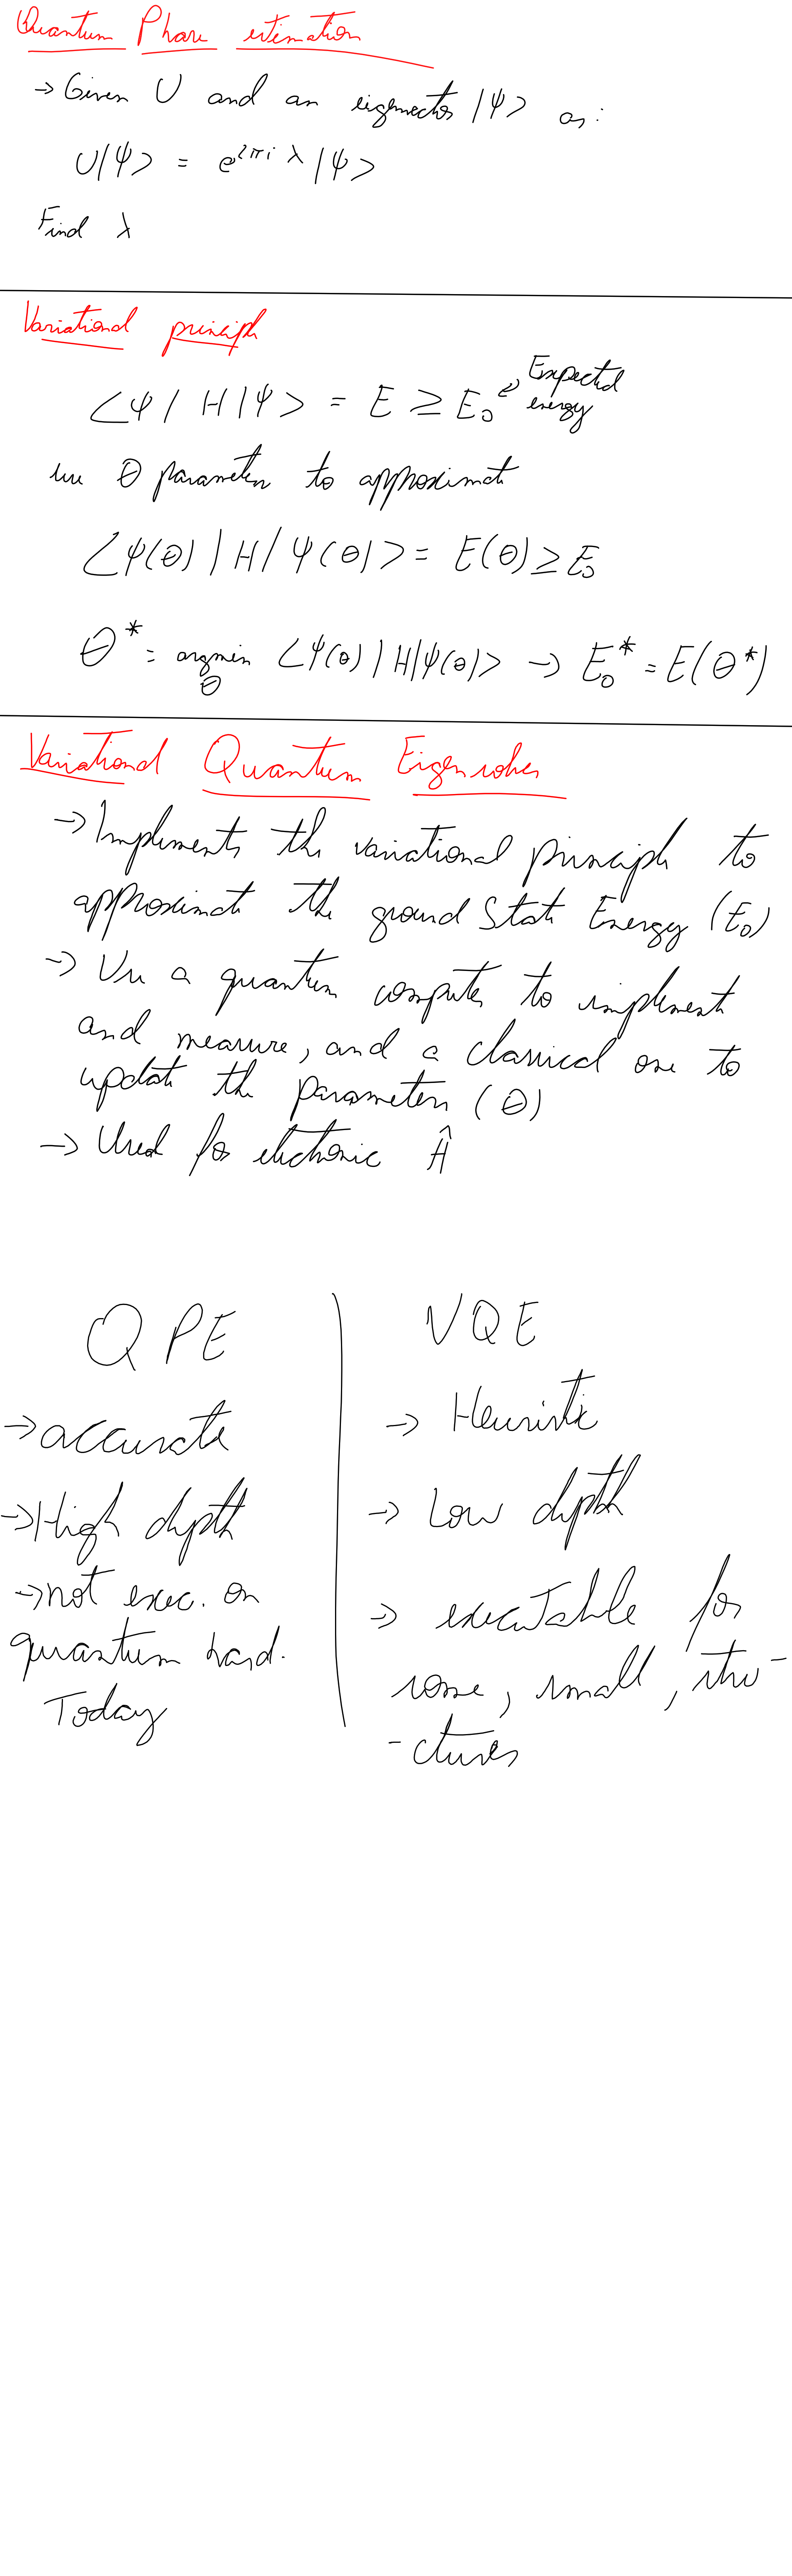 Quantum Phase estimation
→ Given U and an eigenvector |ψ> as:
U|ψ> = e^{2πi λ} |ψ>
Find λ
Variational principle
<ψ| H |ψ> = E ≥ E₀ Expected energy
use θ parameters to approximate
<ψ(θ)|H|ψ(θ)> = E(θ) ≥ E₀
θ* = argmin_θ <ψ(θ)|H|ψ(θ)> → E₀* = E(θ*)
Variational Quantum Eigensolver
→ Implements the variational principle to
approximate the ground State Energy (E₀)
→ Use a quantum computer to implement
and measure, and a classical one to
update the parameters (θ)
→ Used for electronic Ĥ
QPE
→ accurate
→ High depth
→ not exec. on
quantum hard.
Today
VQE
→ Heuristic
→ Low depth
→ executable for
some, small, stru-
-ctures